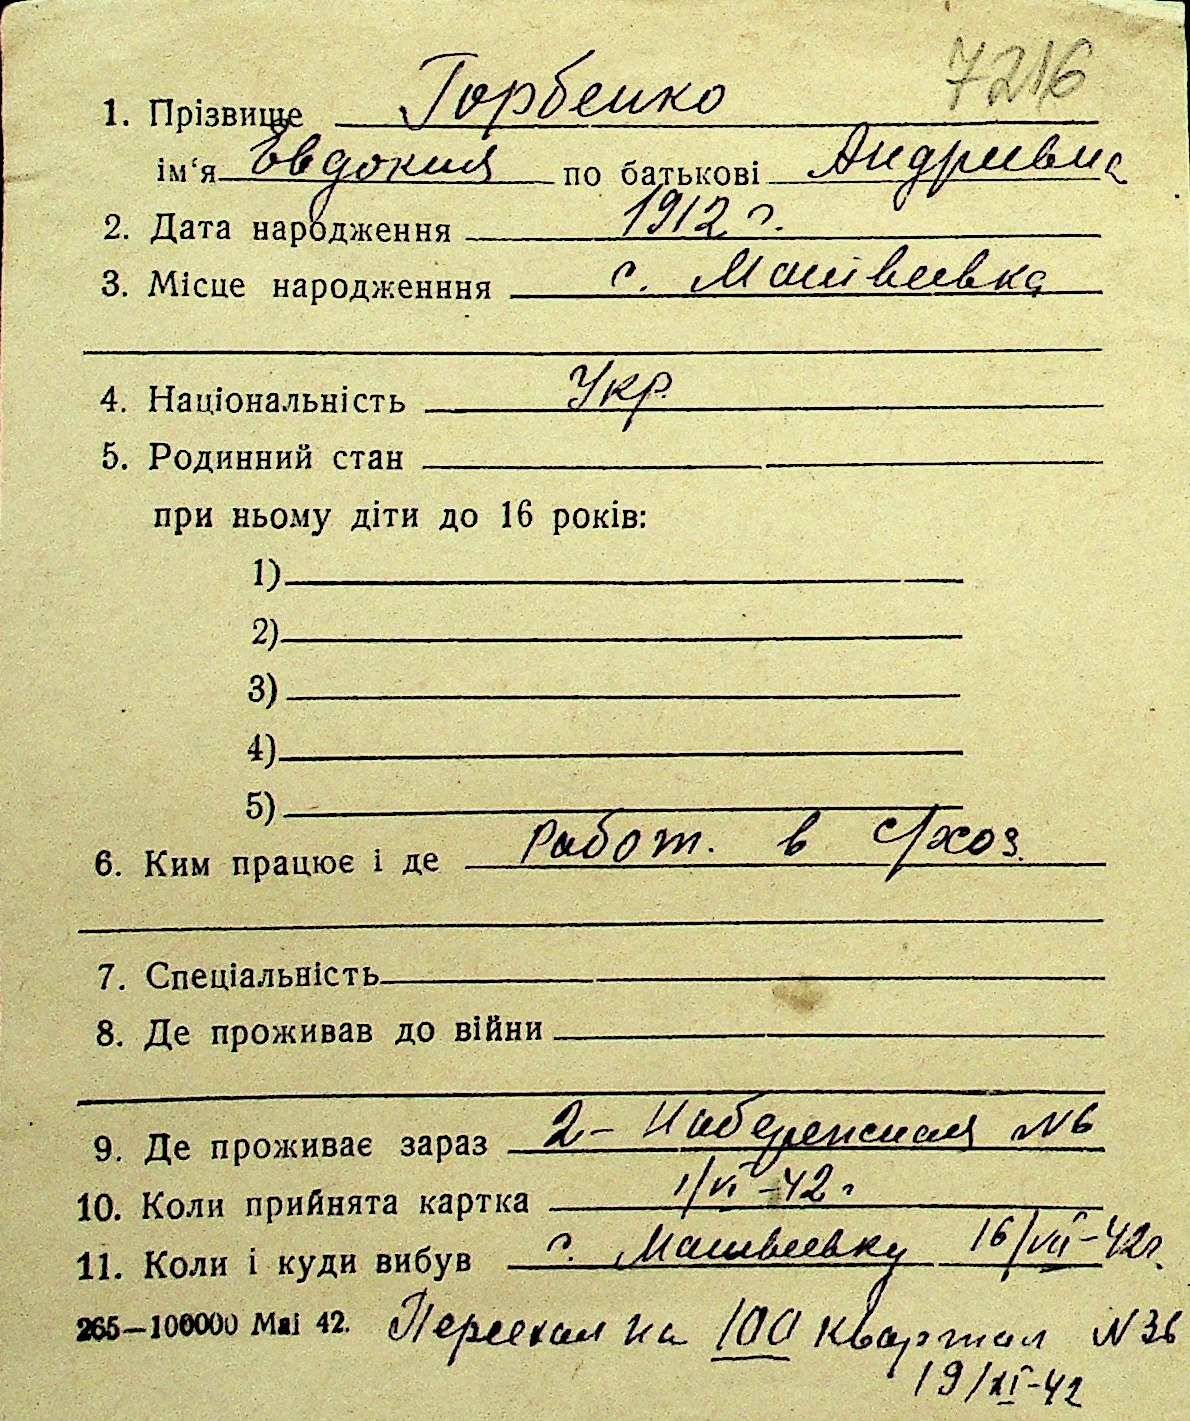 7216
1. Прізвище Горбенко
ім'я Евдокия по батькові Андриевна
2. Дата народження 1912 г.
3. Місце народженння с. Матвеевка
4. Національність Укр.
5. Родинний стан
при ньому діти до 16 років:
1)
2)
3)
4)
5)
6. Ким працює і де Работ. в с/хоз.
7. Спеціальність
8. Де проживав до війни
9. Де проживає зараз 2-Набережная №6
10. Коли прийнята картка 1/VI-42г
11. Коли і куди вибув с. Матвеевку 16/VII-42г.
265—100000 Маі 42. Переехал на 100 квартал N 36
19/XI-42